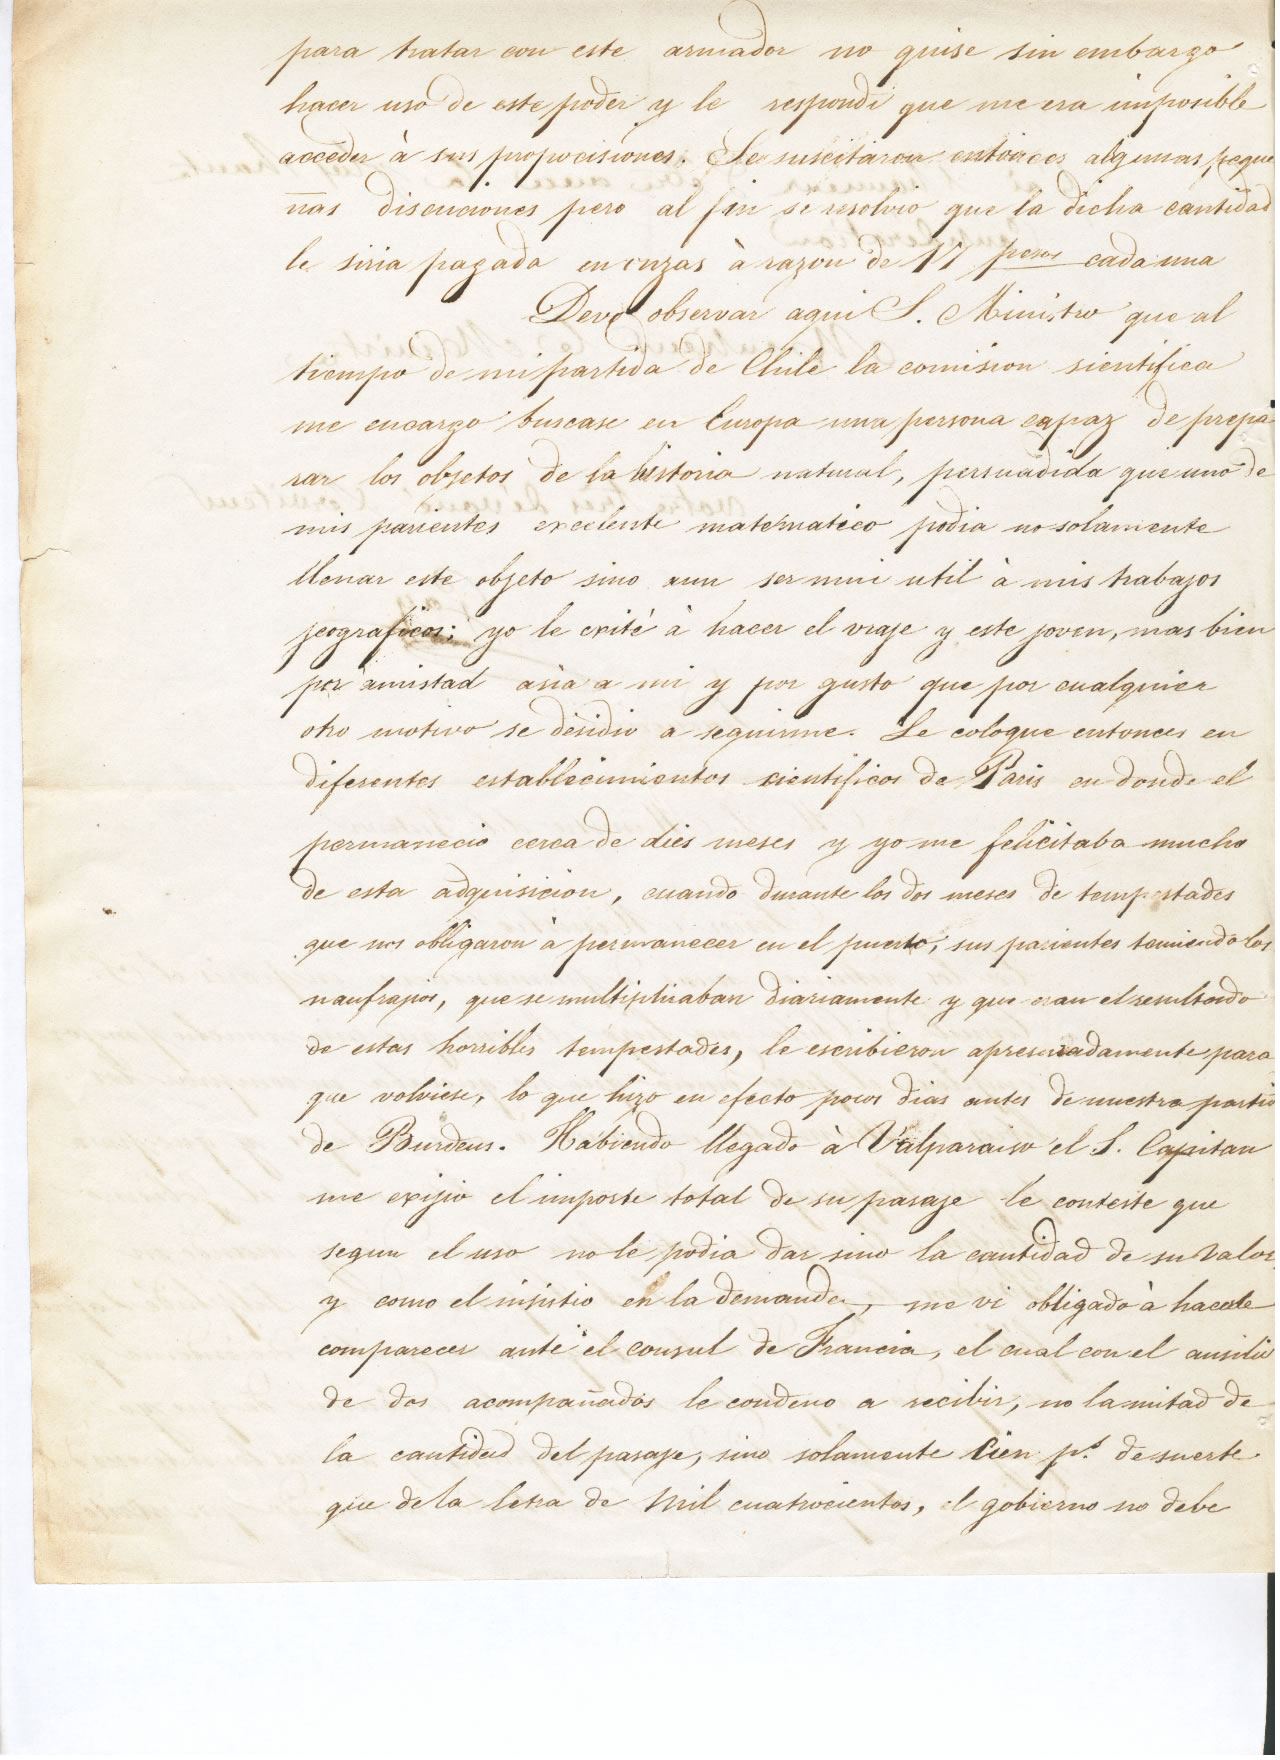 para tratar con este armador no quise sin embargo
hacer uso de este poder y le respondi que me era imposible
acceder à sus propocisiones. Se suscitaron entonces algunas peque
ñas discuciones pero al fin se resolvio que la dicha cantidad
le siria pagada en onzas à razon de 17 pesos cada una
Devo observar aqui S. Ministro que al
tiempo de mi partida de Chile la comision sientifica
me encargo buscase en Europa una persona capaz de prepa
rar los objetos de la historia natural, persuadida que uno de
mis parientes excelente matematico podia no solamente
llenar este objeto sino aun ser mui util à mis trabajos
jeograficos; yo le exité à hacer el viaje y este joven, mas bien
por amistad asia a mi y por gusto que por cualquier
otro motivo se desidio a seguirme. Le coloque entonces en
diferentes establecimientos cientificos de Paris en donde el
permanecio cerca de dies meses y yo me felicitaba mucho
de esta adquisicion, cuando durante los dos meses de tempestades
que nos obligaron à permanecer en el puerto, sus parientes temiendo los
naufrajios, que se multiplicaban diariamente y que eran el resultado
de estas horribles tempestades, le escribieron apresuradamente para
que volviese, lo que hizo en efecto pocos dias antes de nuestra partid
de Burdeus. Habiendo llegado à Valparaiso el S. Capitan
me exijio el imposte total de su pasaje le conteste que
segun el uso no le podia dar sino la cantidad de su valor
y como el insistio en la demanda, me vi obligado à hacerle
comparecer ante el consul de Francia, el cual con el ausilio
de dos acompañados le condeno a recibir, no la mitad de
la cantidad del pasaje, sino solamente Cien ps. de suerte
que de la letra de mil cuatrocientos, el gobierno no debe